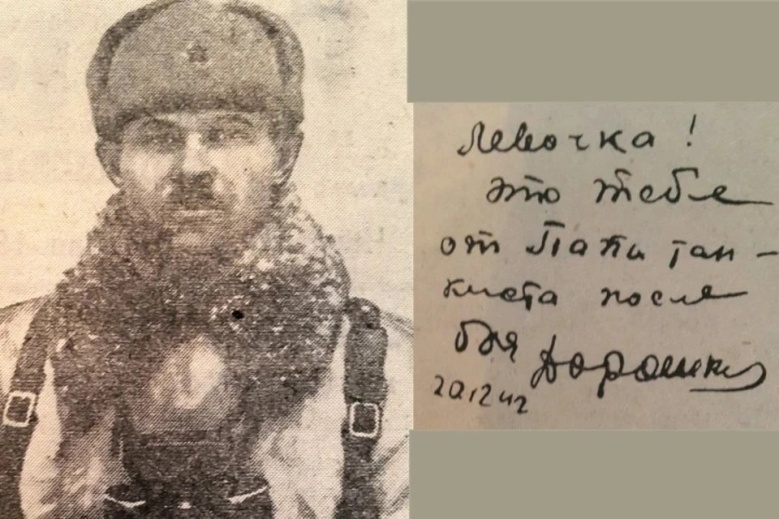 Левочка!
это тебе
от Папи тан-
киста после
боя Дорошкец
20.12.42